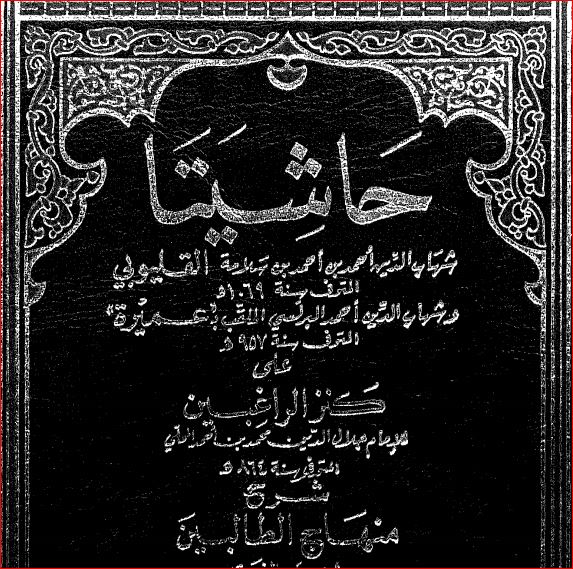 حَاشِيَتَا
شهاب الدين أحمد بن أحمد بن سلامة القليوبي
المتوفى سنة ١٠٦٩ هـ
وشهاب الدين أحمد البرلسي الملقب بـ"عميرة"
المتوفى سنة ٩٥٧ هـ
على
كنز الراغبين
للإمام جلال الدين محمد بن أحمد المحلي
المتوفى سنة ٨٦٤ هـ
شرح
منهاج الطالبين